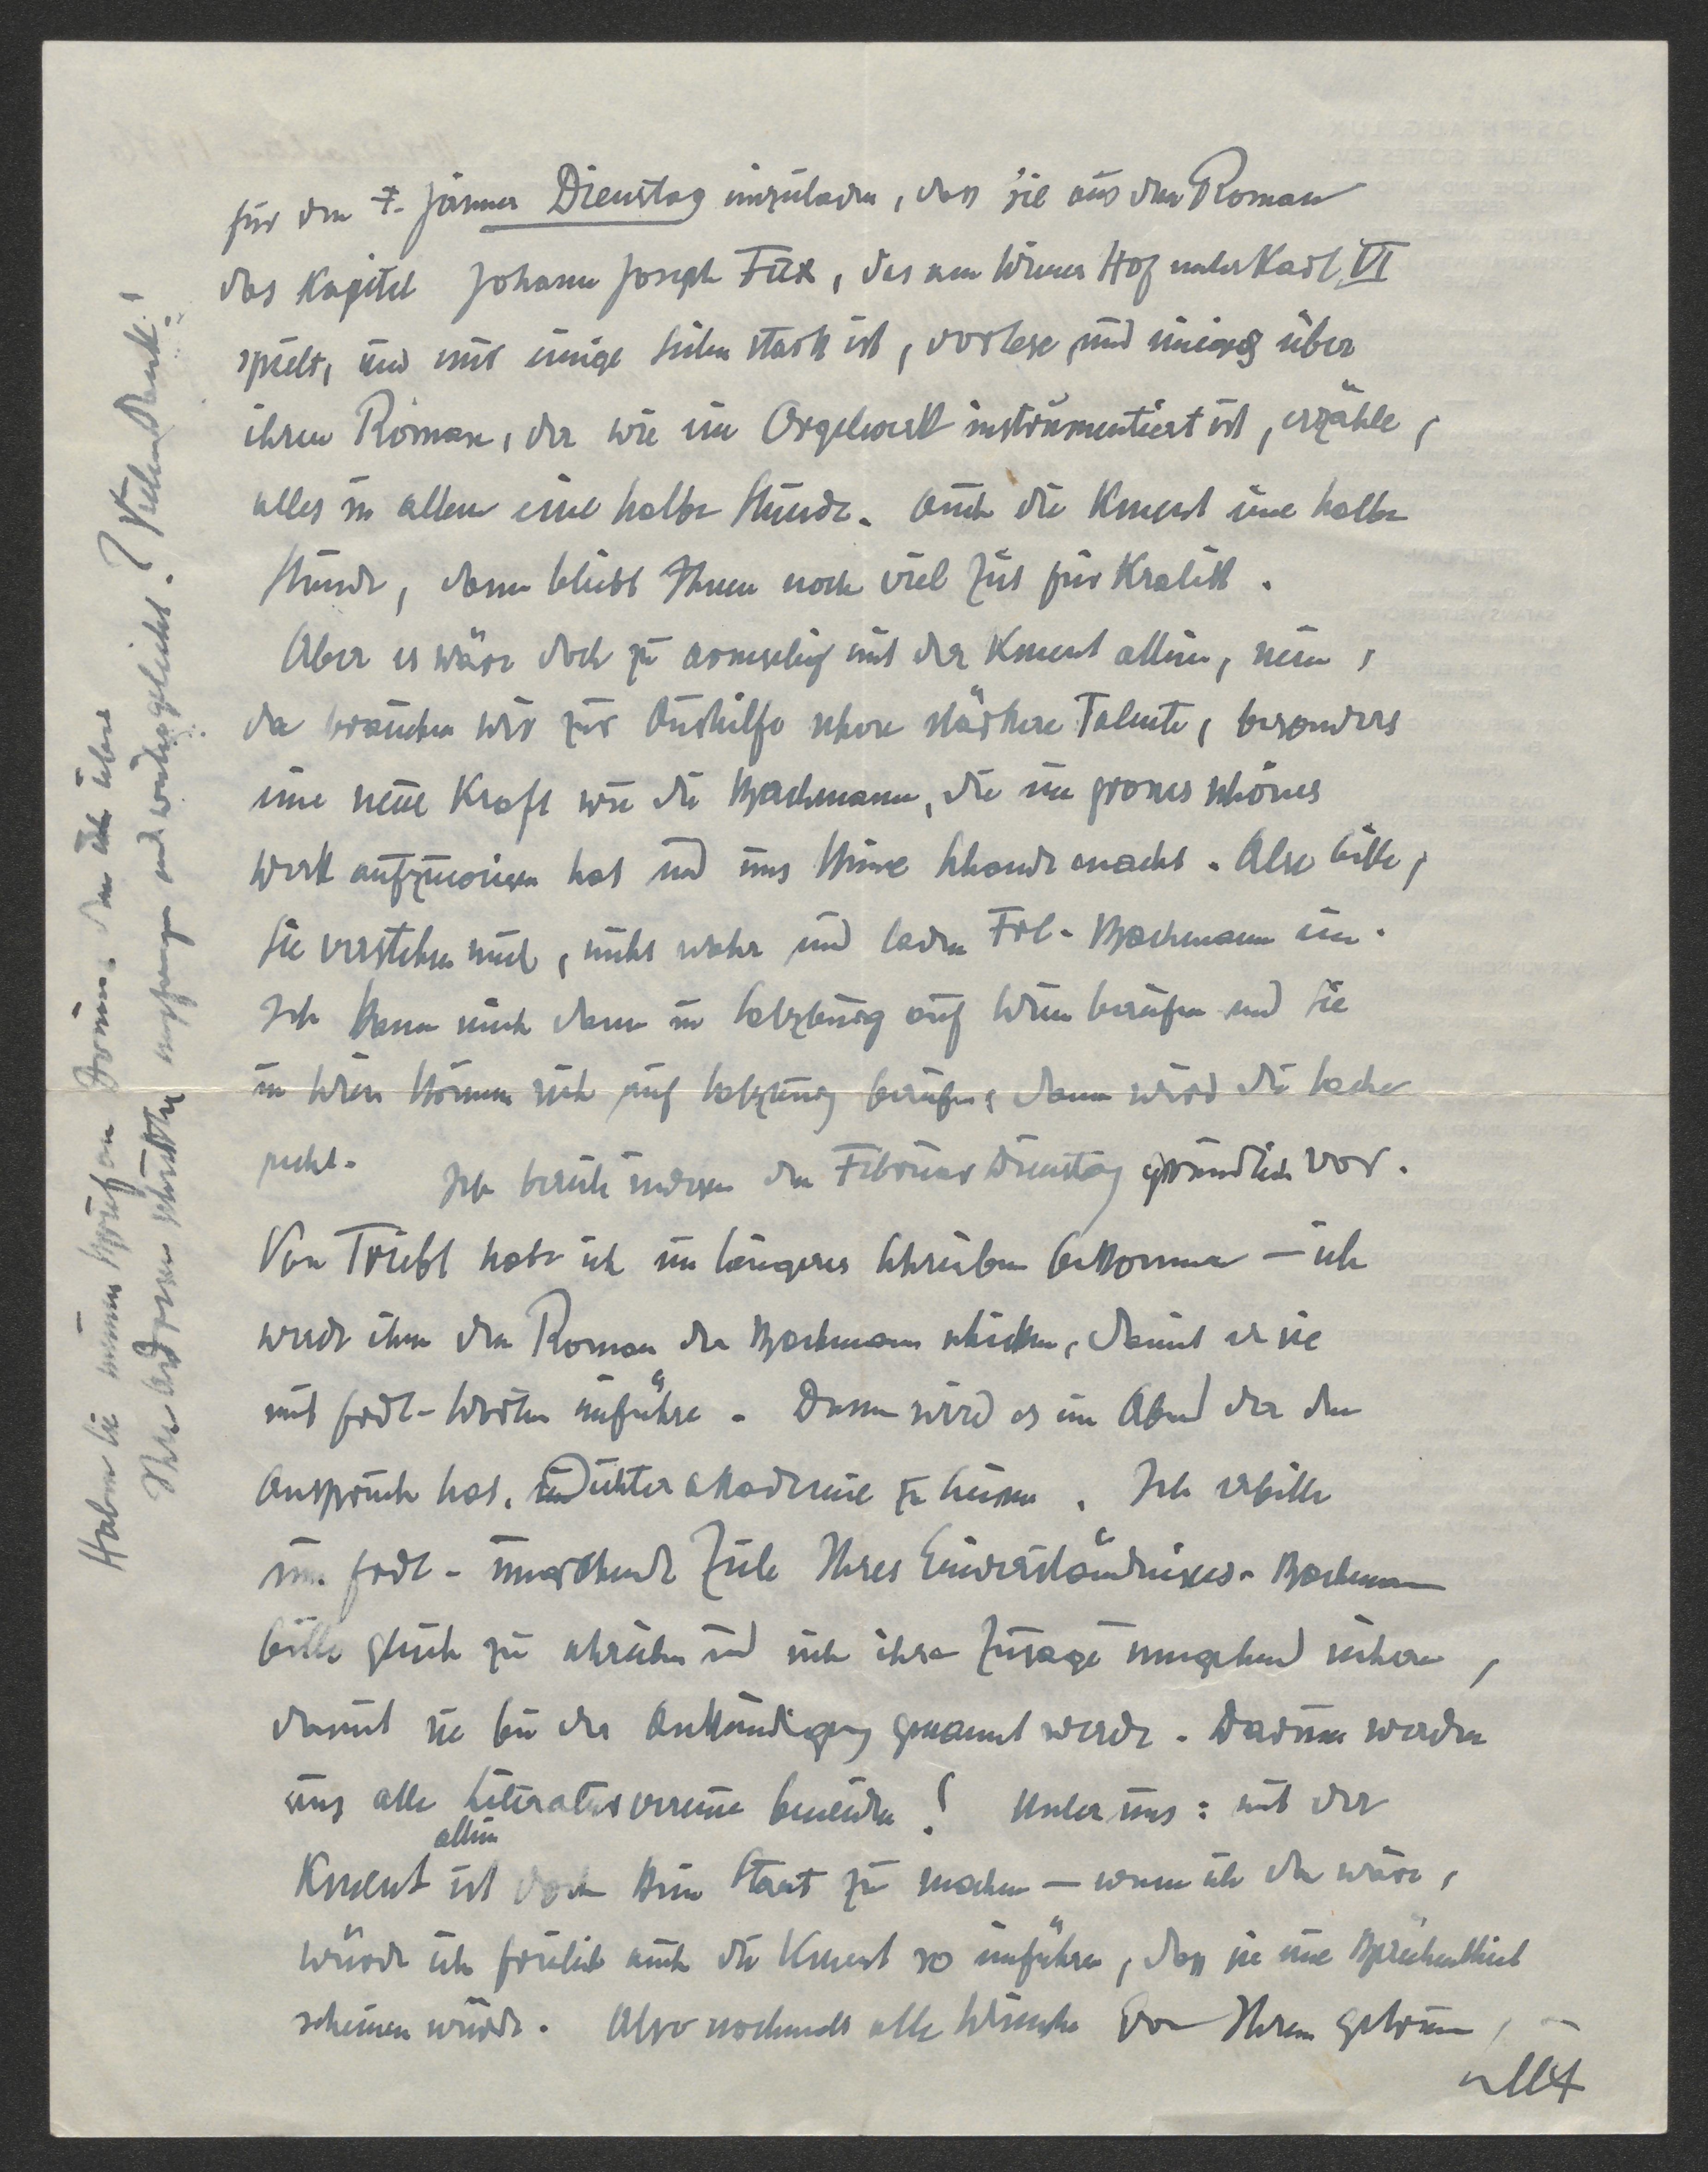 für den 7. Jänner Dienstag einzuladen, dass sie aus dem Roman
das Kapitel Johann Joseph Fux, das am Wiener Hof unter Karl VI
spielt, und nur einige Seiten stark ist, vorlese und einiges über
ihren Roman, der wie ein Orgelwerk instrumentiert ist, erzähle,
alles in allem eine halbe Stunde. Auch die Kment eine halbe
Stunde, dann bleibt Ihnen noch viel Zeit für Kralik.
Aber es wäre doch zu armselig mit der Kment allein, nein,
da brauchen wir zur Aushilfe schon stärkere Talente, besonders
eine neue Kraft wie die Bachmann, die ein grosses schönes
Werk aufzuweisen hat und uns keine Schande macht. Also bitte,
Sie verstehen mich, nicht wahr und laden Frl. Bachmann ein.
Ich kann mich dann in Salzburg auf Wien berufen und Sie
in Wien können sich auf Salzburg berufen, dann wird die Sache
recht. Ich bereite indessen den Februar Dienstag gründlich vor.
Von Triebl habe ich ein längeres Schreiben bekommen – ich
werde ihm den Roman der Bachmann schicken, damit er sie
mit frdl. Worten einführe. Dann wird es ein Abend der den
Anspruch hat, Dichterakademie zu heissen. Ich erbitte
frdl. Zeile Ihres Einverständnisses. Bachmann
bitte gleich zu schreiben und sich ihre Zusage umgehend sichern,
damit sie bei der Ankündigung genannt werde. Darum werden
uns alle Literaturvereine beneiden! Unter uns: mit der
Kment allein ist doch kein Staat zu machen – wenn ich da wäre,
würde ich freilich auch die Kment so einführen, dass sie eine
scheinen würde. Also nochmals alle Wünsche von Ihrem getreuen
Haben Sie meinen Brief an
Ihre Adresse schickte, empfangen und weitergeleitet? Vielen Dank!